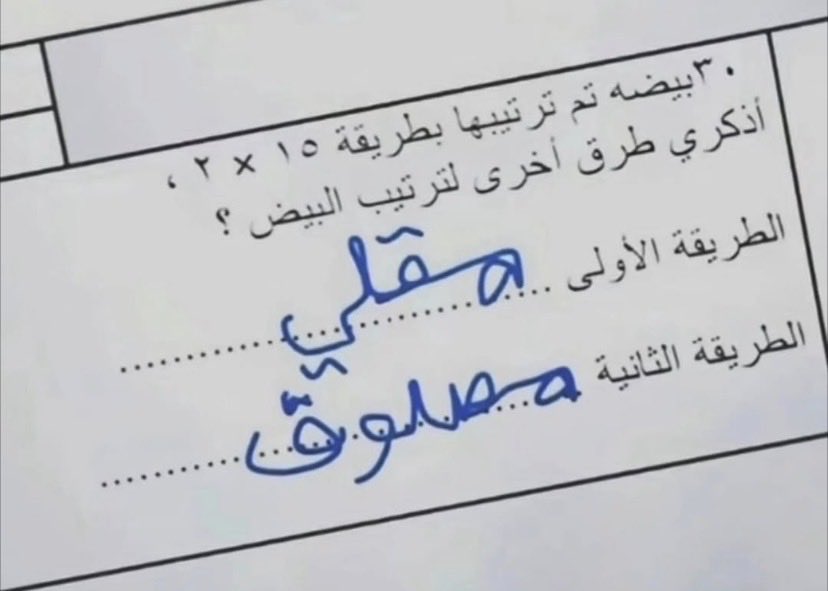 ٣٠بيضه تم ترتيبها بطريقة ١٥ × ٢ ،
أذكري طرق أخرى لترتيب البيض ؟
الطريقة الأولى ........ مقلي ........
الطريقة الثانية ........ مصلوق ........